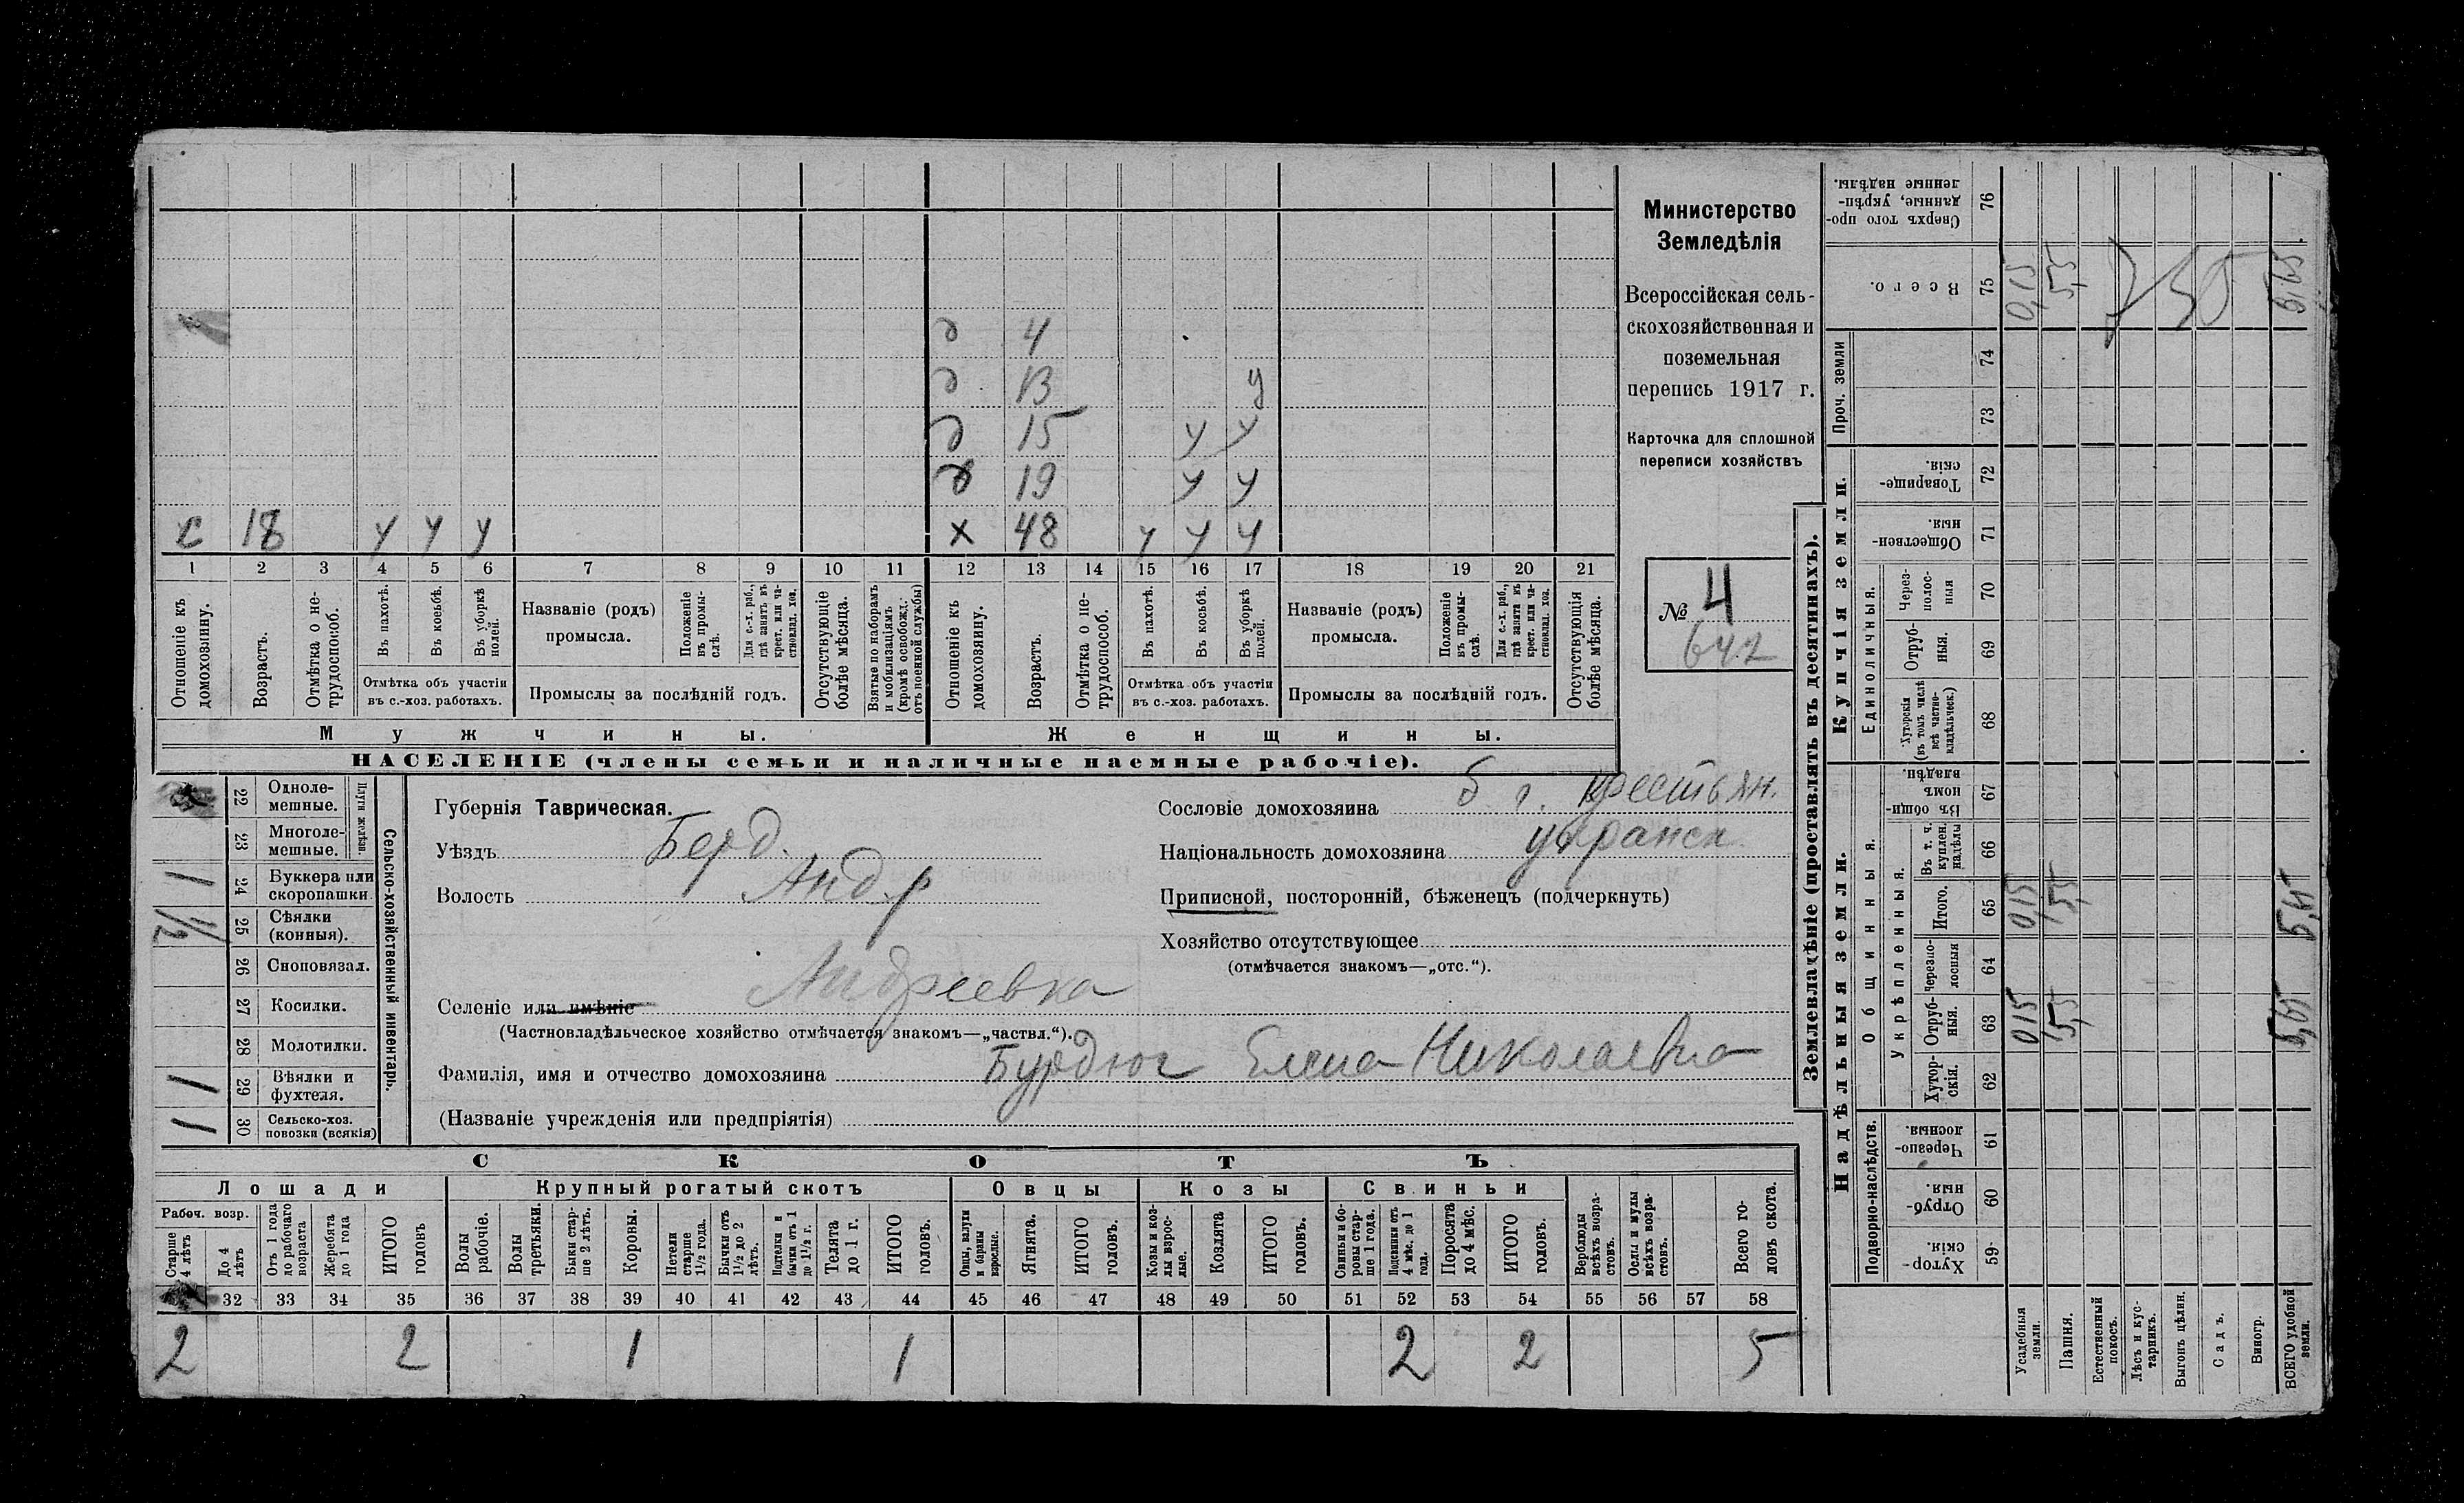 с 18 у у у
д 4
д 13 у
д 15 у у
д 19 у у
х 48 у у у
1 2 3 4 5 6 7 8 9 10 11 12 13 14 15 16 17 18 19 20 21
Отношеніе къ домохозяину.
Возрастъ.
Отмѣтка о не-
трудоспособ.
Въ пахотѣ.
Въ косьбѣ.
Въ уборкѣ
полей.
Отмѣтка объ участіи
въ с.-хоз. работахъ.
Названіе (родъ)
промысла.
Положеніе
въ промы-
слѣ.
Для с.-х. раб.,
гдѣ занятъ въ
крест. или ча-
стновлад. хоз.
Промыслы за послѣдній годъ.
Отсутствующіе
болѣе мѣсяца.
Взятые по наборамъ
и мобилизаціямъ
(кромѣ освобожд.
отъ военной службы)
Отношеніе къ
домохозяину.
Возрастъ.
Отмѣтка о не-
трудоспособ.
Въ пахотѣ.
Въ косьбѣ.
Въ уборкѣ
полей.
Отмѣтка объ участіи
въ с.-хоз. работахъ.
Названіе (родъ)
промысла.
Положеніе
въ промы-
слѣ.
Для с.-х. раб.,
гдѣ занята въ
крест. или ча-
стновлад. хоз.
Промыслы за послѣдній годъ.
Отсутствующія
болѣе мѣсяца.
Мужчины.
Женщины.
НАСЕЛЕНІЕ (члены семьи и наличные наемные рабочіе).
Министерство
Земледѣлія
Всероссійская сель-
скохозяйственная и
поземельная
перепись 1917 г.
Карточка для сплошной
переписи хозяйствъ
№ 4
642
22 Одноле-
мешные.
23 Многоле-
мешные.
Плуги желѣзн.
24 Буккера или
скоропашки
1
25 Сѣялки
(конныя).
1/2
26 Сноповязал.
27 Косилки.
28 Молотилки.
29 Вѣялки и
фухтеля.
1
30 Сельско-хоз.
повозки (всякія)
1
Сельско-хозяйственный инвентарь.
Губернія Таврическая.
Уѣздъ Берд.
Волость Андр
Селеніе или имѣніе Андреевка
(Частновладѣльческое хозяйство отмѣчается знакомъ—„частвл.“).
Фамилія, имя и отчество домохозяина Бурдюг Елена Николаевна
(Названіе учрежденія или предпріятія)
Сословіе домохозяина б г. крестьян.
Національность домохозяина
Приписной, посторонній, бѣженецъ (подчеркнуть)
Хозяйство отсутствующее
(отмѣчается знакомъ—„отс.“).
СКОТЪ
Лошади Крупный рогатый скотъ Овцы Козы Свиньи
Рабоч. возр.
Старше
4 лѣтъ
До 4
лѣтъ
Отъ 1 года
до рабочаго
возраста
Жеребята
до 1 года
ИТОГО
головъ
Волы
рабочіе.
Волы
третьяки.
Быки стар-
ше 2 лѣтъ.
Коровы.
Нетели
старше
1½ года.
Бычки отъ
1½ до 2
лѣтъ.
Подтелки и
бычки отъ 1
до 1½ г.
Телята
до 1 г.
ИТОГО
головъ.
Овцы, валухи
и бараны
взрослые.
Ягнята.
ИТОГО
головъ.
Козы и коз-
лы взрос-
лые.
Козлята
ИТОГО
головъ.
Свиньи и бо-
ровы стар-
ше 1 года.
Подсвинки отъ
4 мѣс. до 1
года.
Поросята
до 4 мѣс.
ИТОГО
головъ.
Верблюды
всѣхъ возра-
стовъ.
Ослы и мулы
всѣхъ возра-
стовъ.
Всего го-
ловъ скота.
32 33 34 35 36 37 38 39 40 41 42 43 44 45 46 47 48 49 50 51 52 53 54 55 56 57 58
2 2 1 1 2 2 5
Землевладѣніе (проставлять въ десятинахъ).
Надѣльныя земли.
Купчія земли.
Проч. земли
Подворно-наслѣдств.
Общинныя.
Укрѣпленныя.
Единоличныя.
Сверхъ того про-
данные, укрѣп-
ленные надѣлы.
76
Всего.
75
0,15
5,5
5,65
74
73
Товарище-
скія.
72
Обществен-
ныя
71
Через-
полос-
ныя
70
Отруб-
ныя.
69
Хуторскія
(въ томъ числѣ
всѣ частно-
владѣльческ.)
68
Въ общи-
номъ
владѣн.
67
Въ т. ч.
куплен.
надѣлы
66
Итого.
65
0,15
5,5
5,65
Черезпо-
лосныя
64
Отруб-
ныя.
63
0,15
5,5
5,65
Хутор-
скія.
62
Черезпо-
лосныя.
61
Отруб-
ныя.
60
Хутор-
скія.
59
Усадебныя
земли.
Пашня.
Естественный
покосъ.
Лѣсъ и кус-
тарникъ.
Выгонъ цѣлин.
Садъ.
Виногр.
ВСЕГО удобной
земли.